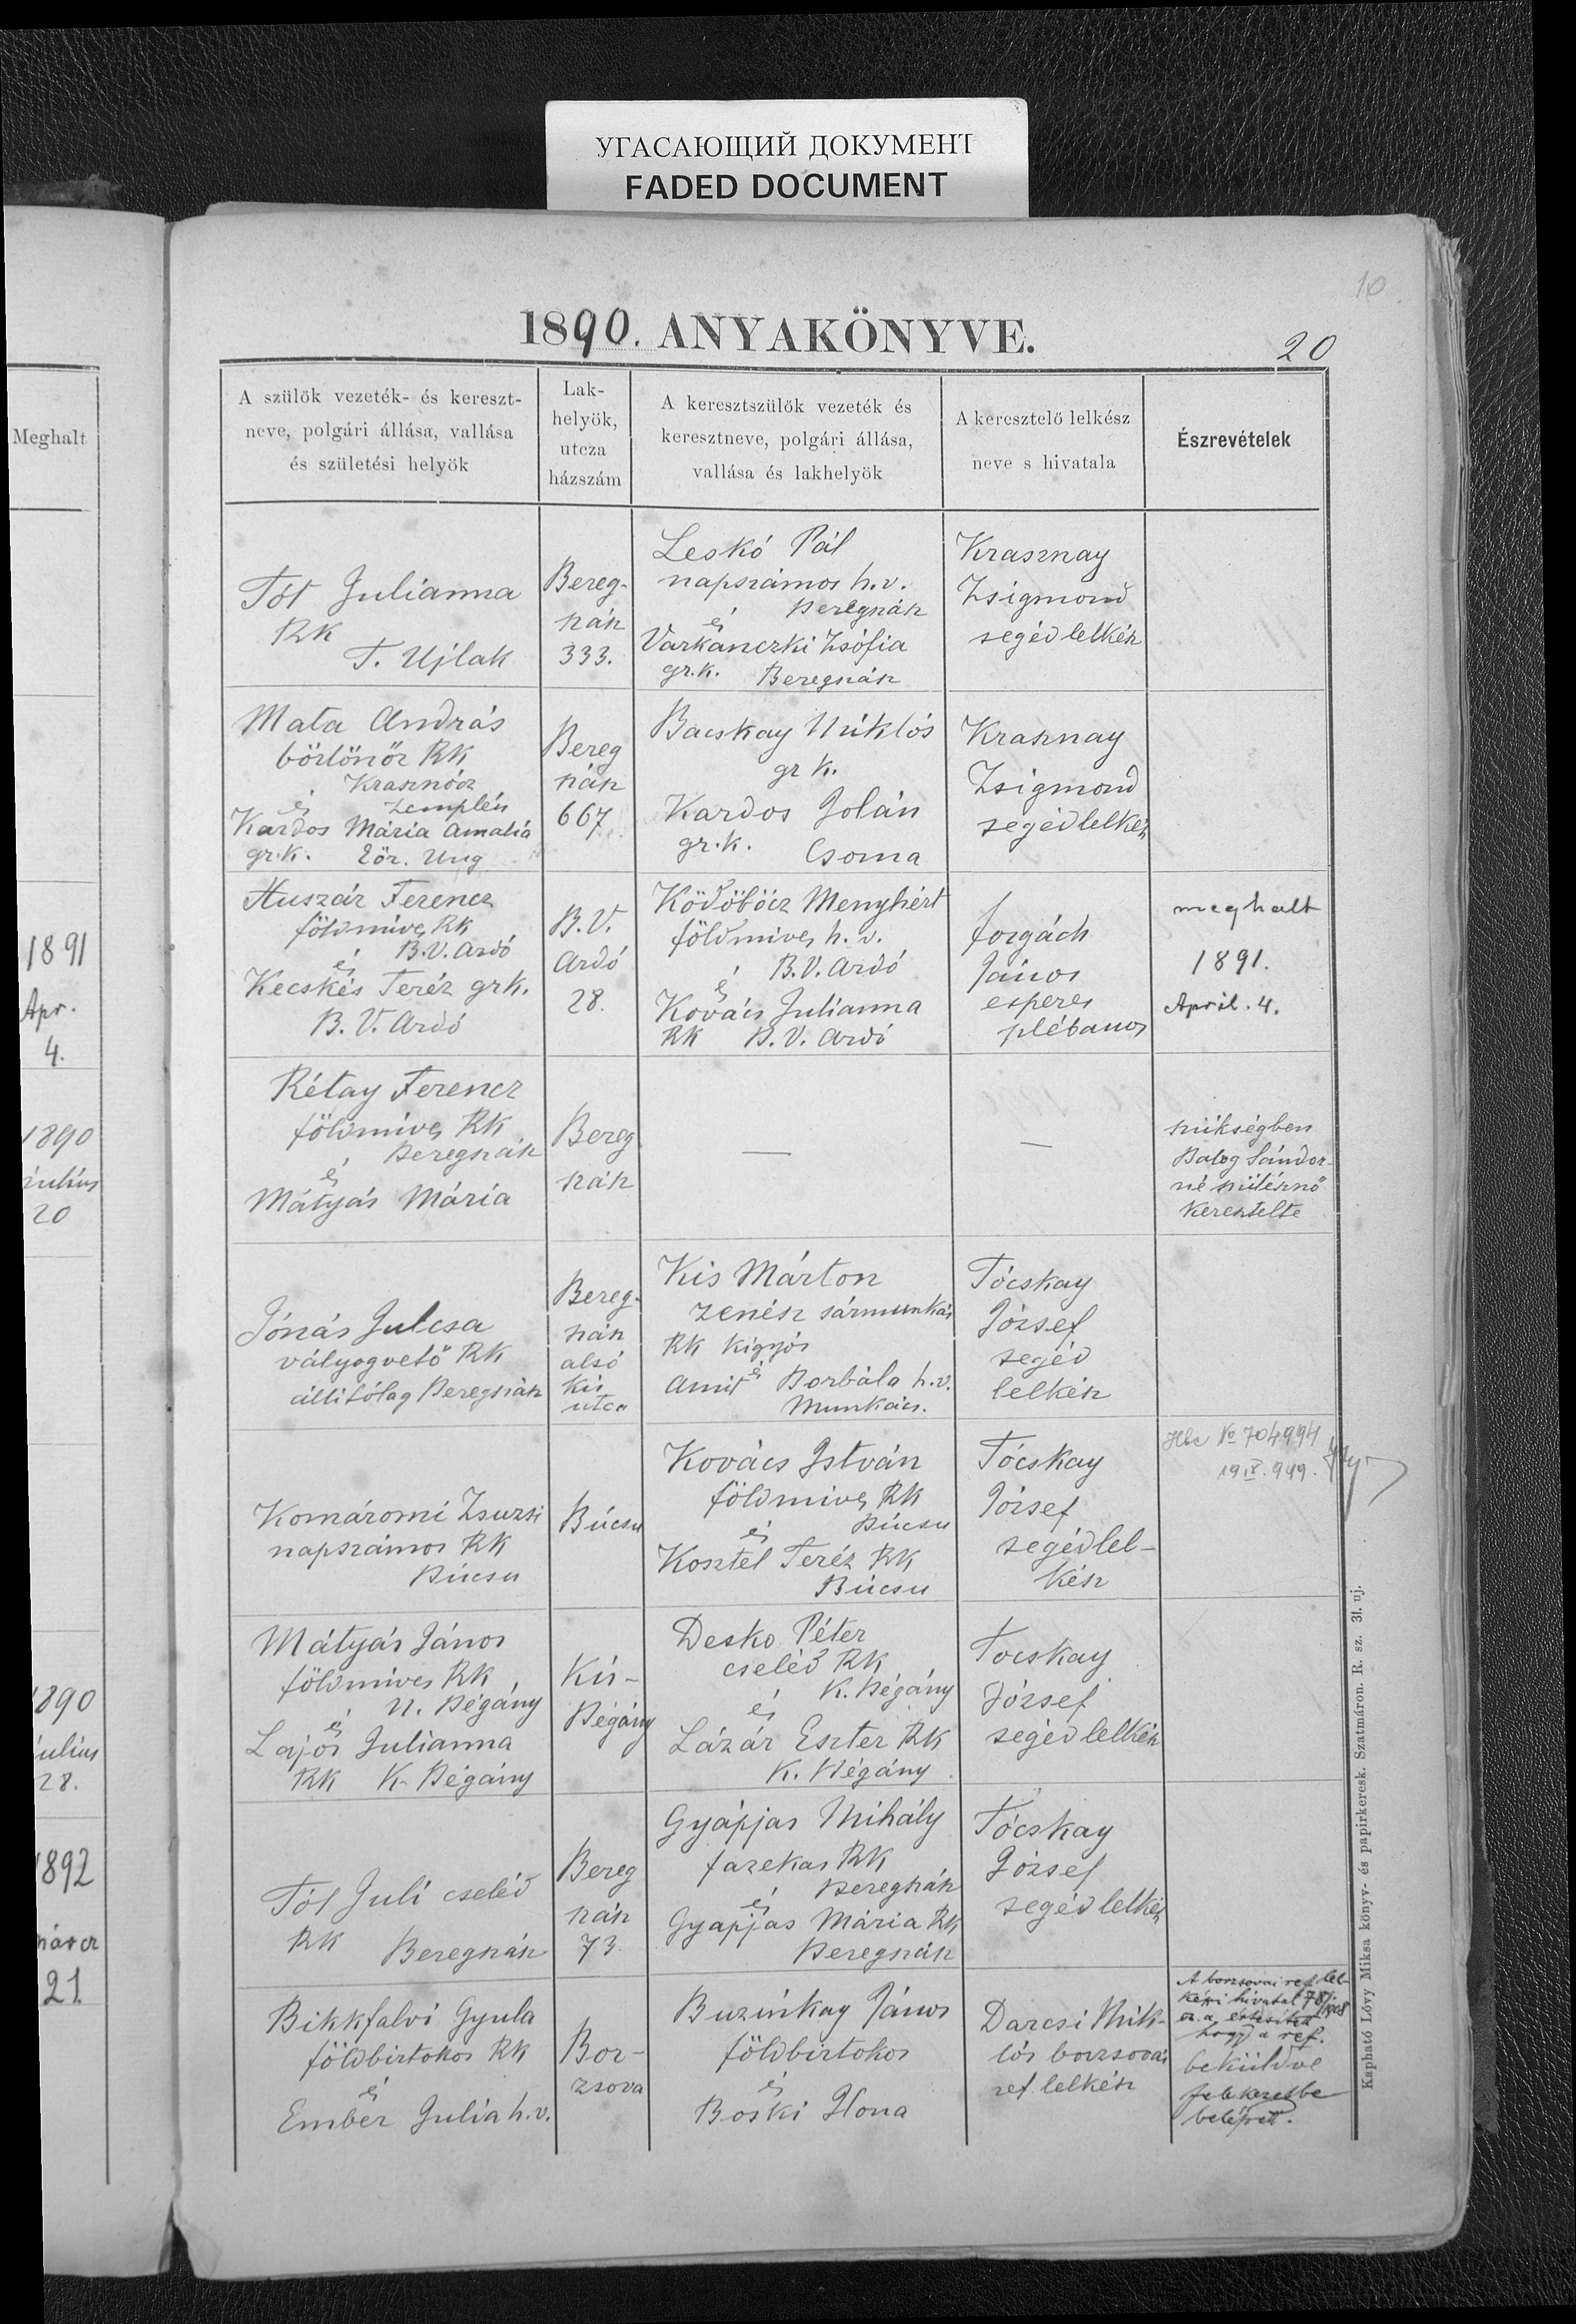 УГАСАЮЩИЙ ДОКУМЕНТ
FADED DOCUMENT
10
1890. ANYAKÖNYVE.
20
Meghalt
1891
Apr.
4.
1890
július
20
1890
július
28.
1892
márcz
21
A szülők vezeték- és kereszt-
neve, polgári állása, vallása
és születési helyök
Lak-
helyök,
utcza
házszám
A keresztszülők vezeték és
keresztneve, polgári állása,
vallása és lakhelyök
A keresztelő lelkész
neve s hivatala
Észrevételek
Tót Julianna
RK
T. Ujlak
Bereg-
szász
333.
Leskó Pál
napszámos h.v.
és Beregszász
Varkanczki Zsófia
gr.k. Beregszász
Krasznay
Zsigmond
segédlelkész
Mata András
börtönőr RK
Krasznócz
és Zemplén
Kardos Mária Amalia
gr.k. Eör. Ung
Bereg
szász
667
Bacskay Miklós
gr k.
Kardos Jolán
gr.k. Csoma
Krasznay
Zsigmond
segédlelkész
Huszár Ferencz
földmíves RK
és B.V. Ardó
Kecskés Teréz grk.
B. V. Ardó
B.V.
Ardó
28.
Ködöböcz Menyhért
földmives h.v.
és B.V. Ardó
Kovács Julianna
RK B.V. Ardó
Forgách
János
esperes
plébanos
meghalt
1891.
April. 4.
Rétay Ferencz
földmíves RK
és Beregszász
Mátyás Mária
Bereg
szász
—
—
szükségben
Balog Sándor-
né szülésznő
keresztelte
Jónás Julcsa
vályogvető RK
állitólag Beregszász
Bereg-
szász
alsó
kis
utca
Kis Márton
zenész sármunkás
RK Kigyós
Amit és Borbála h.v.
Munkács.
Tócskay
József
segéd
lelkész
Komáromi Zsuzsi
napszámos RK
Búcsu
Búcsu
Kovács István
földmives RK
és Búcsu
Kosztel Teréz RK
Búcsu
Tócskay
József
segédlel-
kész
No 704994
19 IX. 949.
Mátyás János
földmives RK
és N. Bégány
Lajos Julianna
RK K. Bégány
Kis-
Bégány
Desko Péter
cseléd RK
és K. Bégány
Lázár Eszter RK
K. Bégány
Tocskay
József
segédlelkész
Tót Juli cseléd
RK Beregszász
Bereg
szász
73.
Gyápjas Mihály
fazekas RK
és Beregszász
Gyapjas Mária RK
Beregszász
Tócskay
József
segédlelkész
Bikkfalvi Gyula
földbirtokos RK
és
Ember Julia h.v.
Bor-
zsova
Buzinkay János
földbirtokos
és
Boski Ilona
Darcsi Mik-
lós borzsovai
ref lelkész
A borzsovai ref lel-
készi hivatal 78/1908
sz. a. értesített
hogy a ref.
beküldve
felekezetbe
belépett.
Kapható Lővy Miksa könyv- és papirkeresk. Szatmáron. R. sz. 3l. uj.